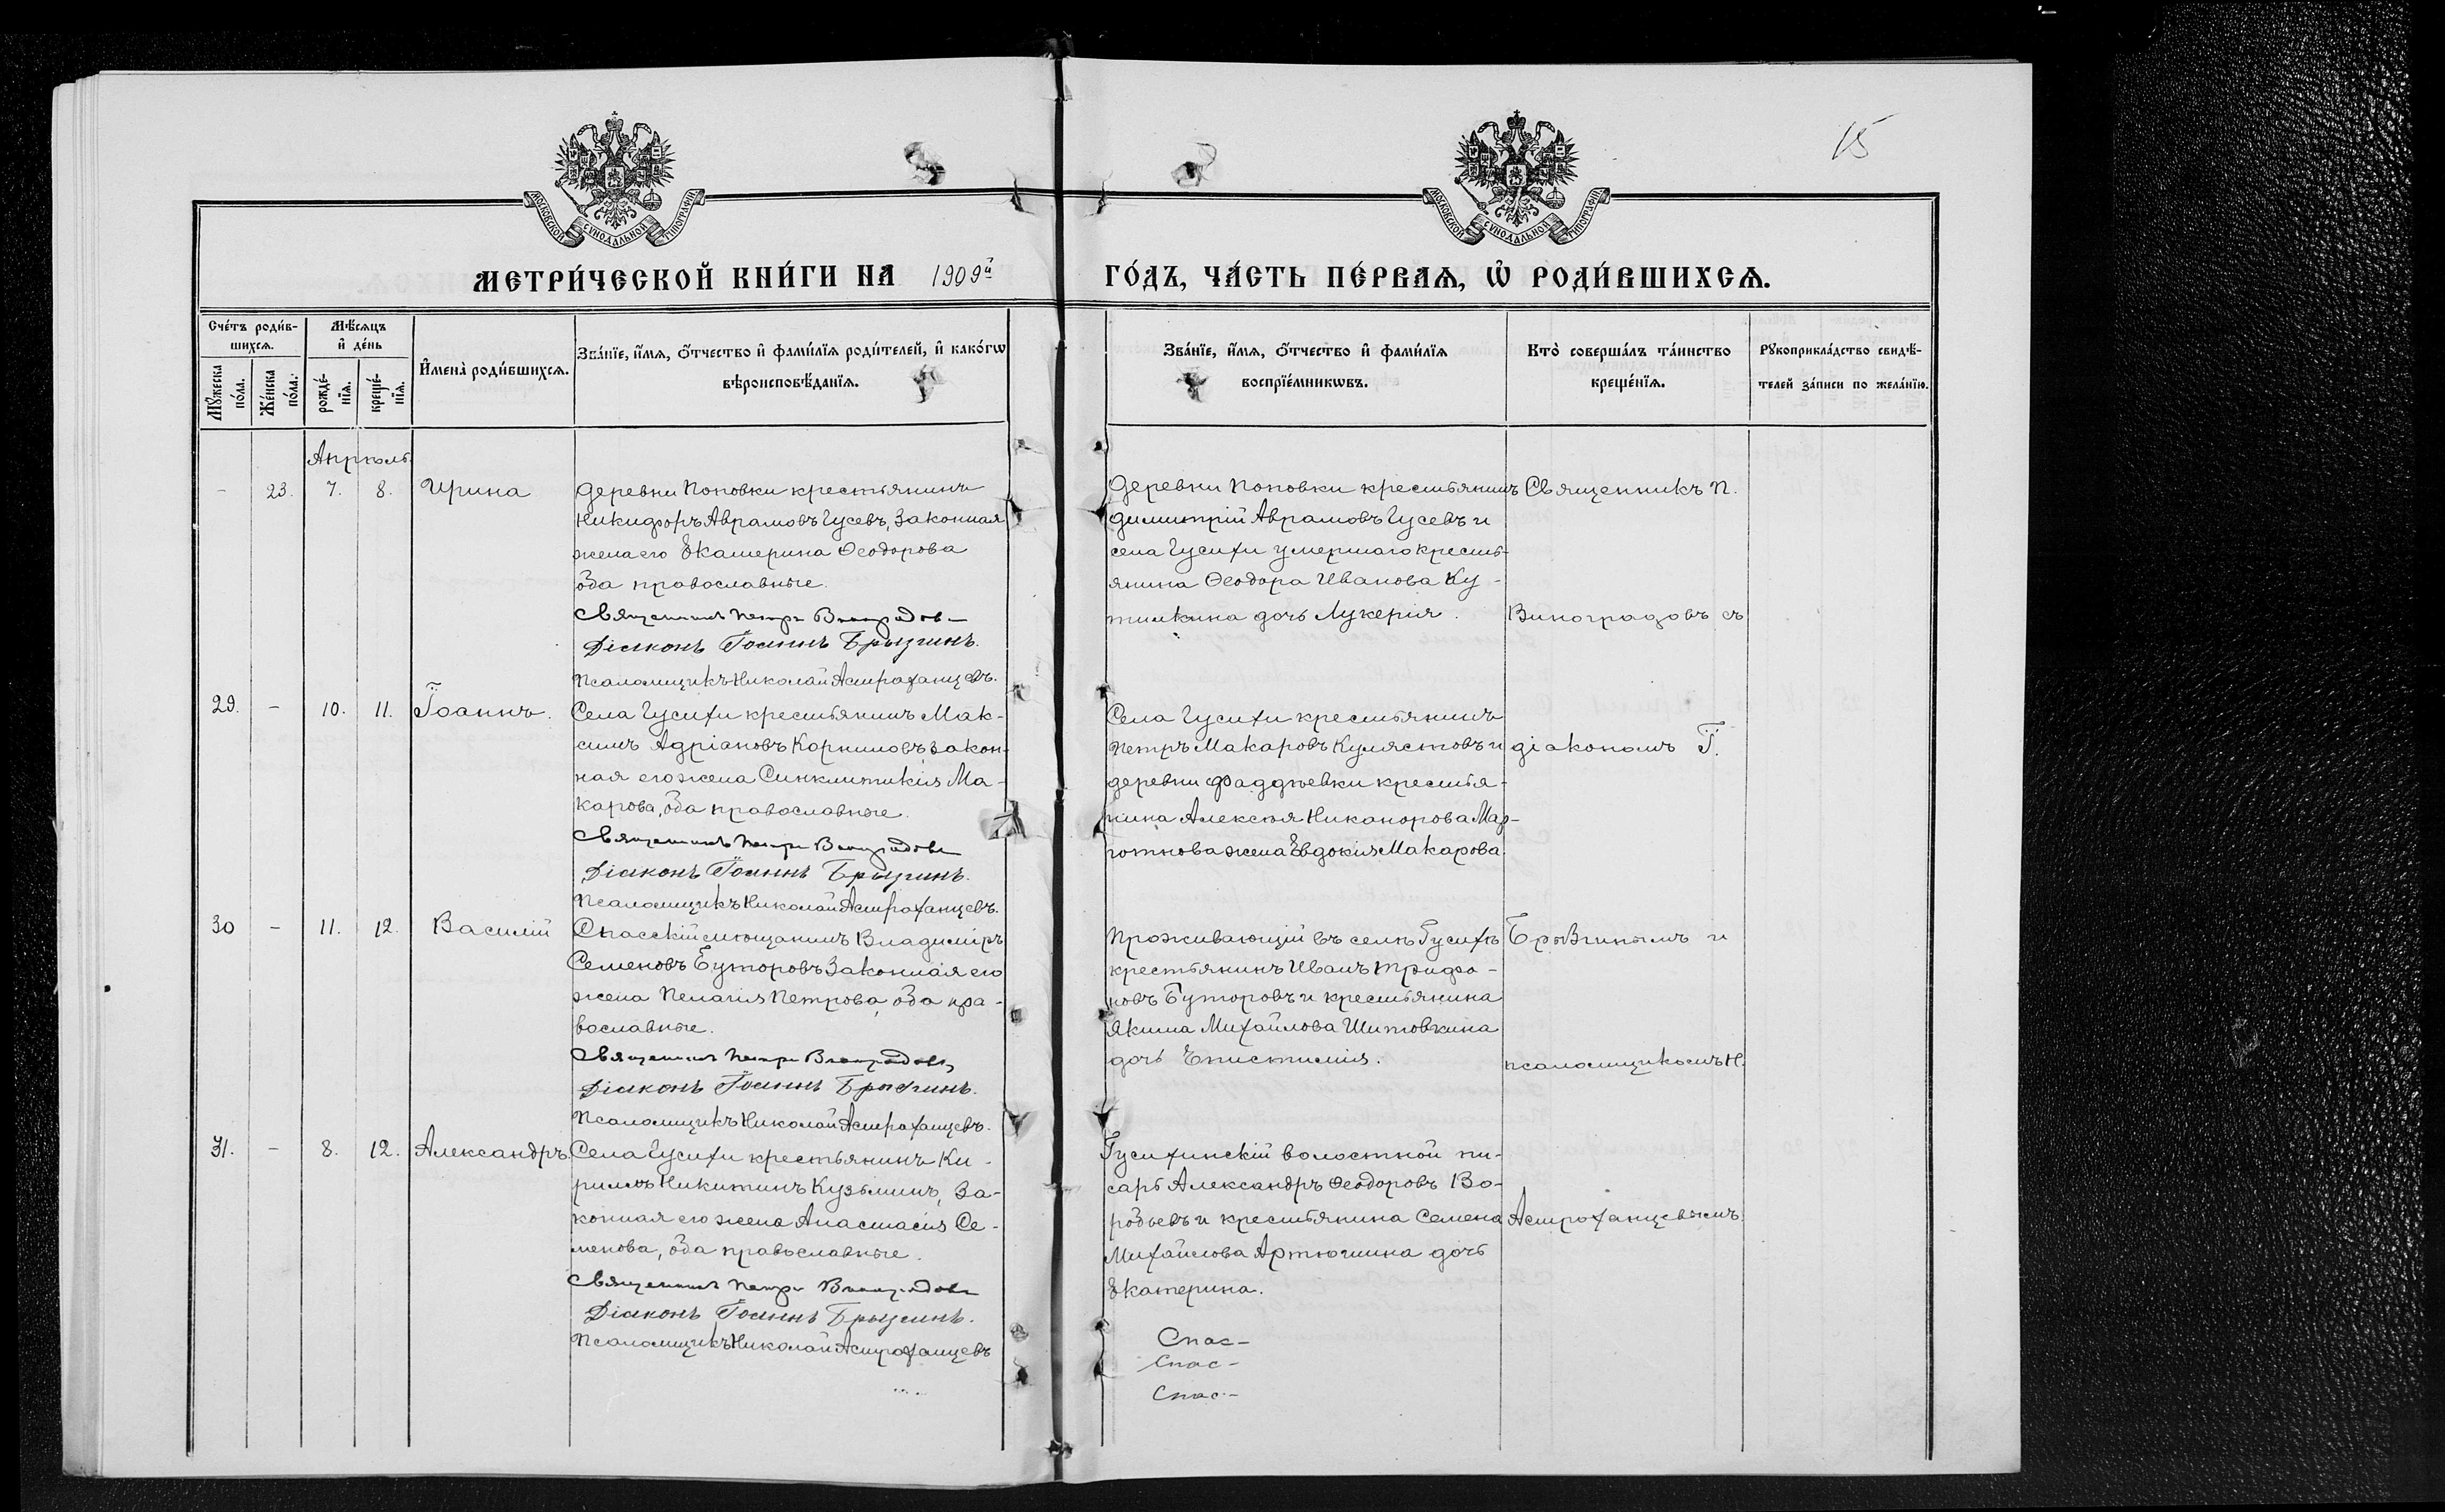 15
МОСКОВСКОЙ СУНОДАЛЬНОЙ ТИПОГРАФІИ
МОСКОВСКОЙ СУНОДАЛЬНОЙ ТИПОГРАФІИ
МЕТРИ́ЧЕСКОЙ КНИ́ГИ НА 1909й ГО́ДЪ, ЧА́СТЬ ПЕ́РВАѦ, Ѡ РОДИ́ВШИХСѦ.
Сче́тъ роди́в-
шихсѧ.
Мѣ́сѧцъ
и҆ де́нь
Мꙋ́жеска
по́ла.
Же́нска
по́ла.
рожде́-
нїѧ.
креще́-
нїѧ.
И҆мена̀ роди́вшихсѧ.
Зва́нїе, и҆́мѧ, ѻ҆́тчество и҆ фами́лїѧ роди́телей, и҆ како́гѡ
вѣроисповѣ́данїѧ.
Зва́нїе, и҆́мѧ, ѻ҆́тчество и҆ фами́лїѧ
воспрїе́мникѡвъ.
Кто̀ соверша́лъ та́инство
креще́нїѧ.
Рꙋкоприкла́дство свидѣ́-
телей за́писи по жела́нїю.
Апрѣль.
- 23. 7. 8. Ирина
Деревни Поповки крестьянинъ
Никифоръ Аврамовъ Гусевъ, законная
жена его Екатерина Ѳеодорова
оба православные.
Священникъ Петръ Виноградовъ
Діаконъ Іоаннъ Брызгинъ.
Псаломщикъ Николай Астраханцевъ.
Деревни Поповки крестьянинъ
Димитрій Аврамовъ Гусевъ и
села Гусихи умершаго кресть-
янина Ѳеодора Иванова Ку-
тилкина дочь Лукерія.
Священникъ П.
Виноградовъ съ
29. - 10. 11. Іоаннъ.
Села Гусихи крестьянинъ Мак-
симъ Адріановъ Корниловъ закон-
ная его жена Синклитикія Ма-
карова, оба православные.
Священникъ Петръ Виноградовъ
Діаконъ Іоаннъ Брызгинъ.
Псаломщикъ Николай Астраханцевъ.
Села Гусихи крестьянинъ
Петръ Макаровъ Кулястовъ и
деревни Фаддѣевки крестья-
нина Алексѣя Никанорова Мар-
тынова жена Евдокія Макарова.
діакономъ І.
30 - 11. 12. Василій
Спасскій мѣщанинъ Владиміръ
Семеновъ Буторовъ законная его
жена Пелагія Петрова, оба пра-
вославные.
Священникъ Петръ Виноградовъ
Діаконъ Іоаннъ Брызгинъ.
Псаломщикъ Николай Астраханцевъ.
Проживающій въ селѣ Гусихѣ
крестьянинъ Иванъ Трифо-
новъ Буторовъ и крестьянина
Якима Михайлова Шитовкина
дочь Епистимія.
Брызгинымъ и
псаломщикомъ Н.
31. - 8. 12. Александръ
Села Гусихи крестьянинъ Ки-
риллъ Никитинъ Кузьминъ, за-
конная его жена Анастасія Се-
менова, оба православные.
Священникъ Петръ Виноградовъ
Діаконъ Іоаннъ Брызгинъ.
Псаломщикъ Николай Астраханцевъ
Гусихинскій волостной пи-
сарь Александръ Ѳеодоровъ Во-
робьевъ и крестьянина Семена
Михайлова Артюшина дочь
Екатерина.
Астраханцевымъ.
Спас-
Спас-
Спас-